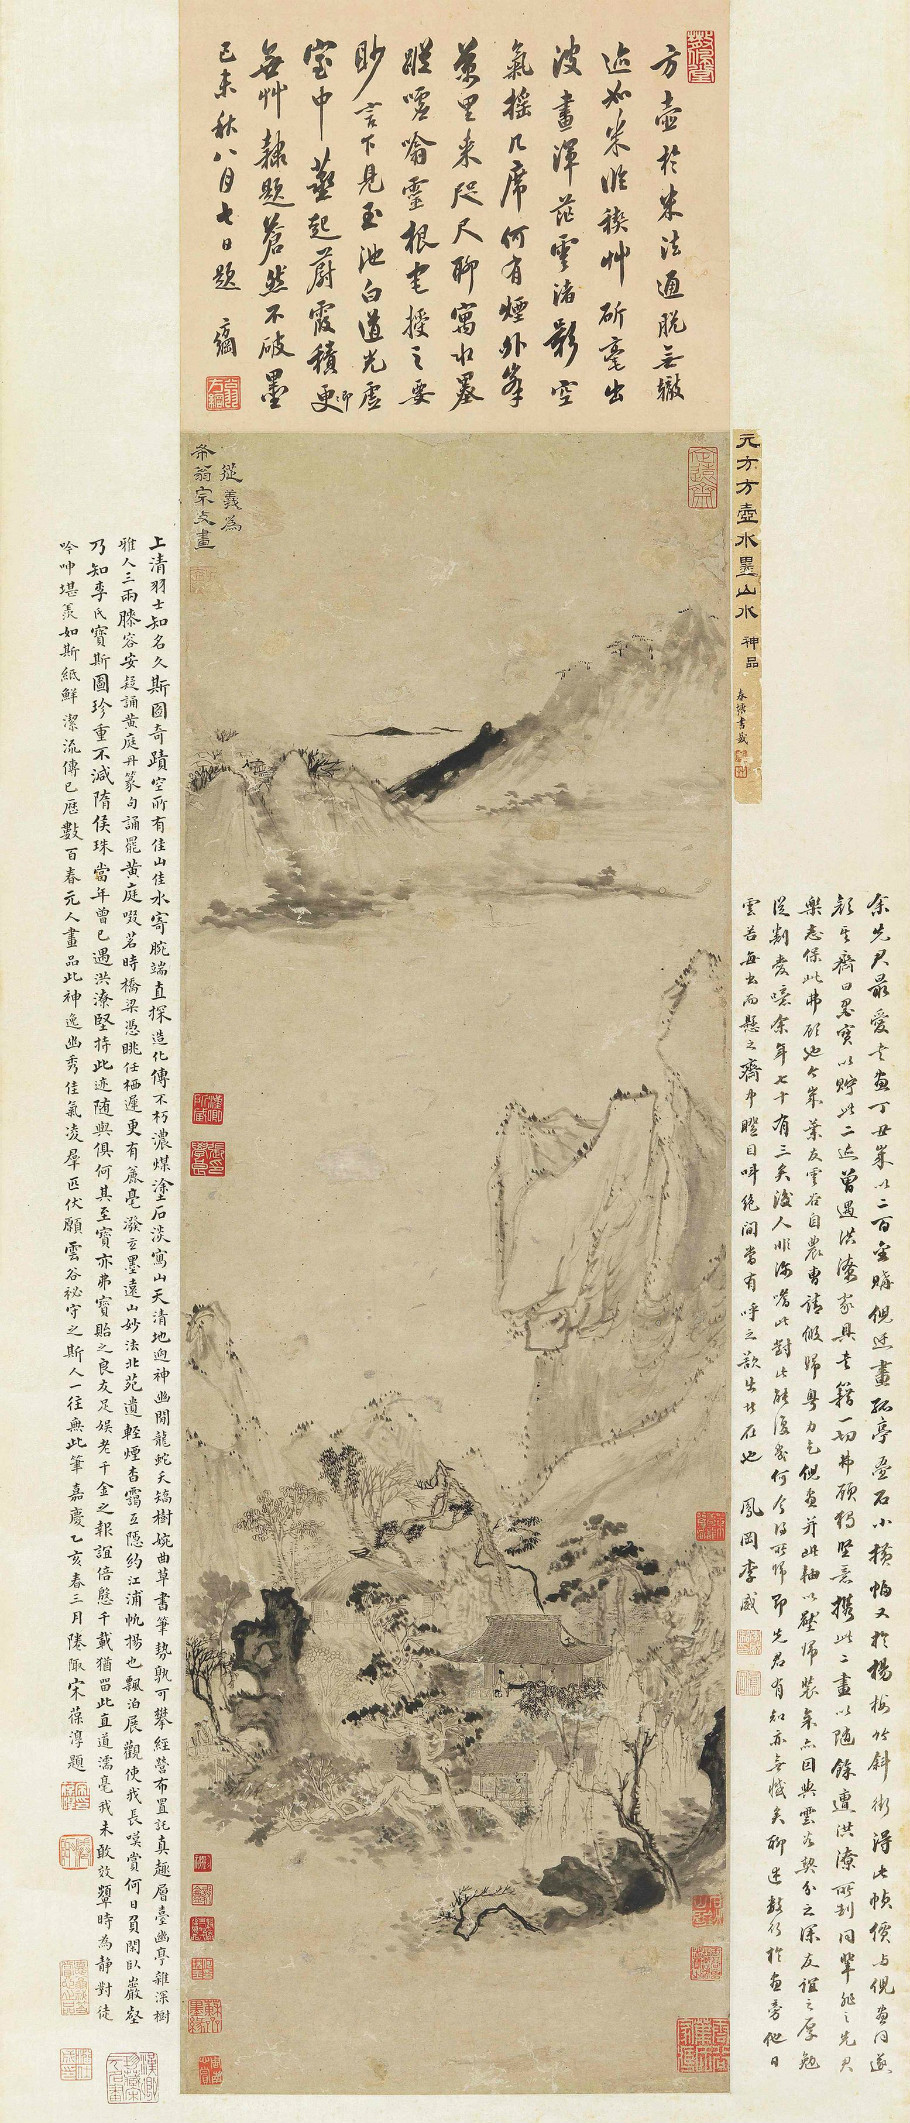 方壺於米法通脫無轍
迹如米臨禊艸斫毫出
波畫渾茫雲渚影空
氣搖几席何有煙外峯
萬里来咫尺聊寓水墨
蹤噓噏靈根宅授之要
眇言下見玉池白道光虛
室中蒸起蔚霞積更卻
無艸隸題蒼然不破墨
己未秋八月七日題
從義為
希翁宗丈畫
元方方壺水墨山水 神品
上清羽士知名久斯圖奇蹟空所有佳山佳水寄腕端直探造化傳不朽濃煤塗石淡寫山天清地迥神幽閒龍蛇夭矯樹婉曲草書筆勢孰可攀經營布置託真趣層臺幽亭雜深樹
雅人三兩膝容安疑誦黃庭丹篆句誦罷黃庭啜茗時橋梁憑眺任栖遲更有麤毫潑立墨遠山妙法北苑遺輕煙杳靄互隱約江浦帆揚也飄泊展觀使我長嘆賞何日買閑臥巖壑
乃知李氏寶斯圖珍重不減隋侯珠當年曾已遇洪潦堅持此迹随與俱何其至寶亦弗寶貽之良友足娛老千金之報誼倍慇千載猶留此直道濡毫我未敢效顰時為靜對徒
吟呻堪羨如斯紙鮮潔流傳已歷數百春元人畫品此神逸幽秀佳氣凌羣匹伏願雲谷祕守之斯人一往無此筆 嘉慶乙亥春三月陭陬宋葆淳題
余先君最愛書畫丁丑歲以二百金購倪迂畫孤亭疊石小橫幅又於楊梅竹斜街得此幀價與倪畫同遂
顏其齋曰寶以貯此二迹曾遇洪潦家具書籍一切弗顧獨堅意攜此二畫以随餘遭洪潦所剖同輩
樂志保此弗顧也今歲葉友雲谷自農曹請假歸粤力乞倪畫并此軸以壓歸裝余亦因與雲谷契分之深友誼之厚勉
從割愛噫余年七十有三矣後人非深嗜此對此能復幾何今得所歸即先君有知亦無憾矣聊述數行於畫旁他日
雲谷每出而懸之齋中瞪目叫絕間當有呼之欲出者在也 鳳岡李威